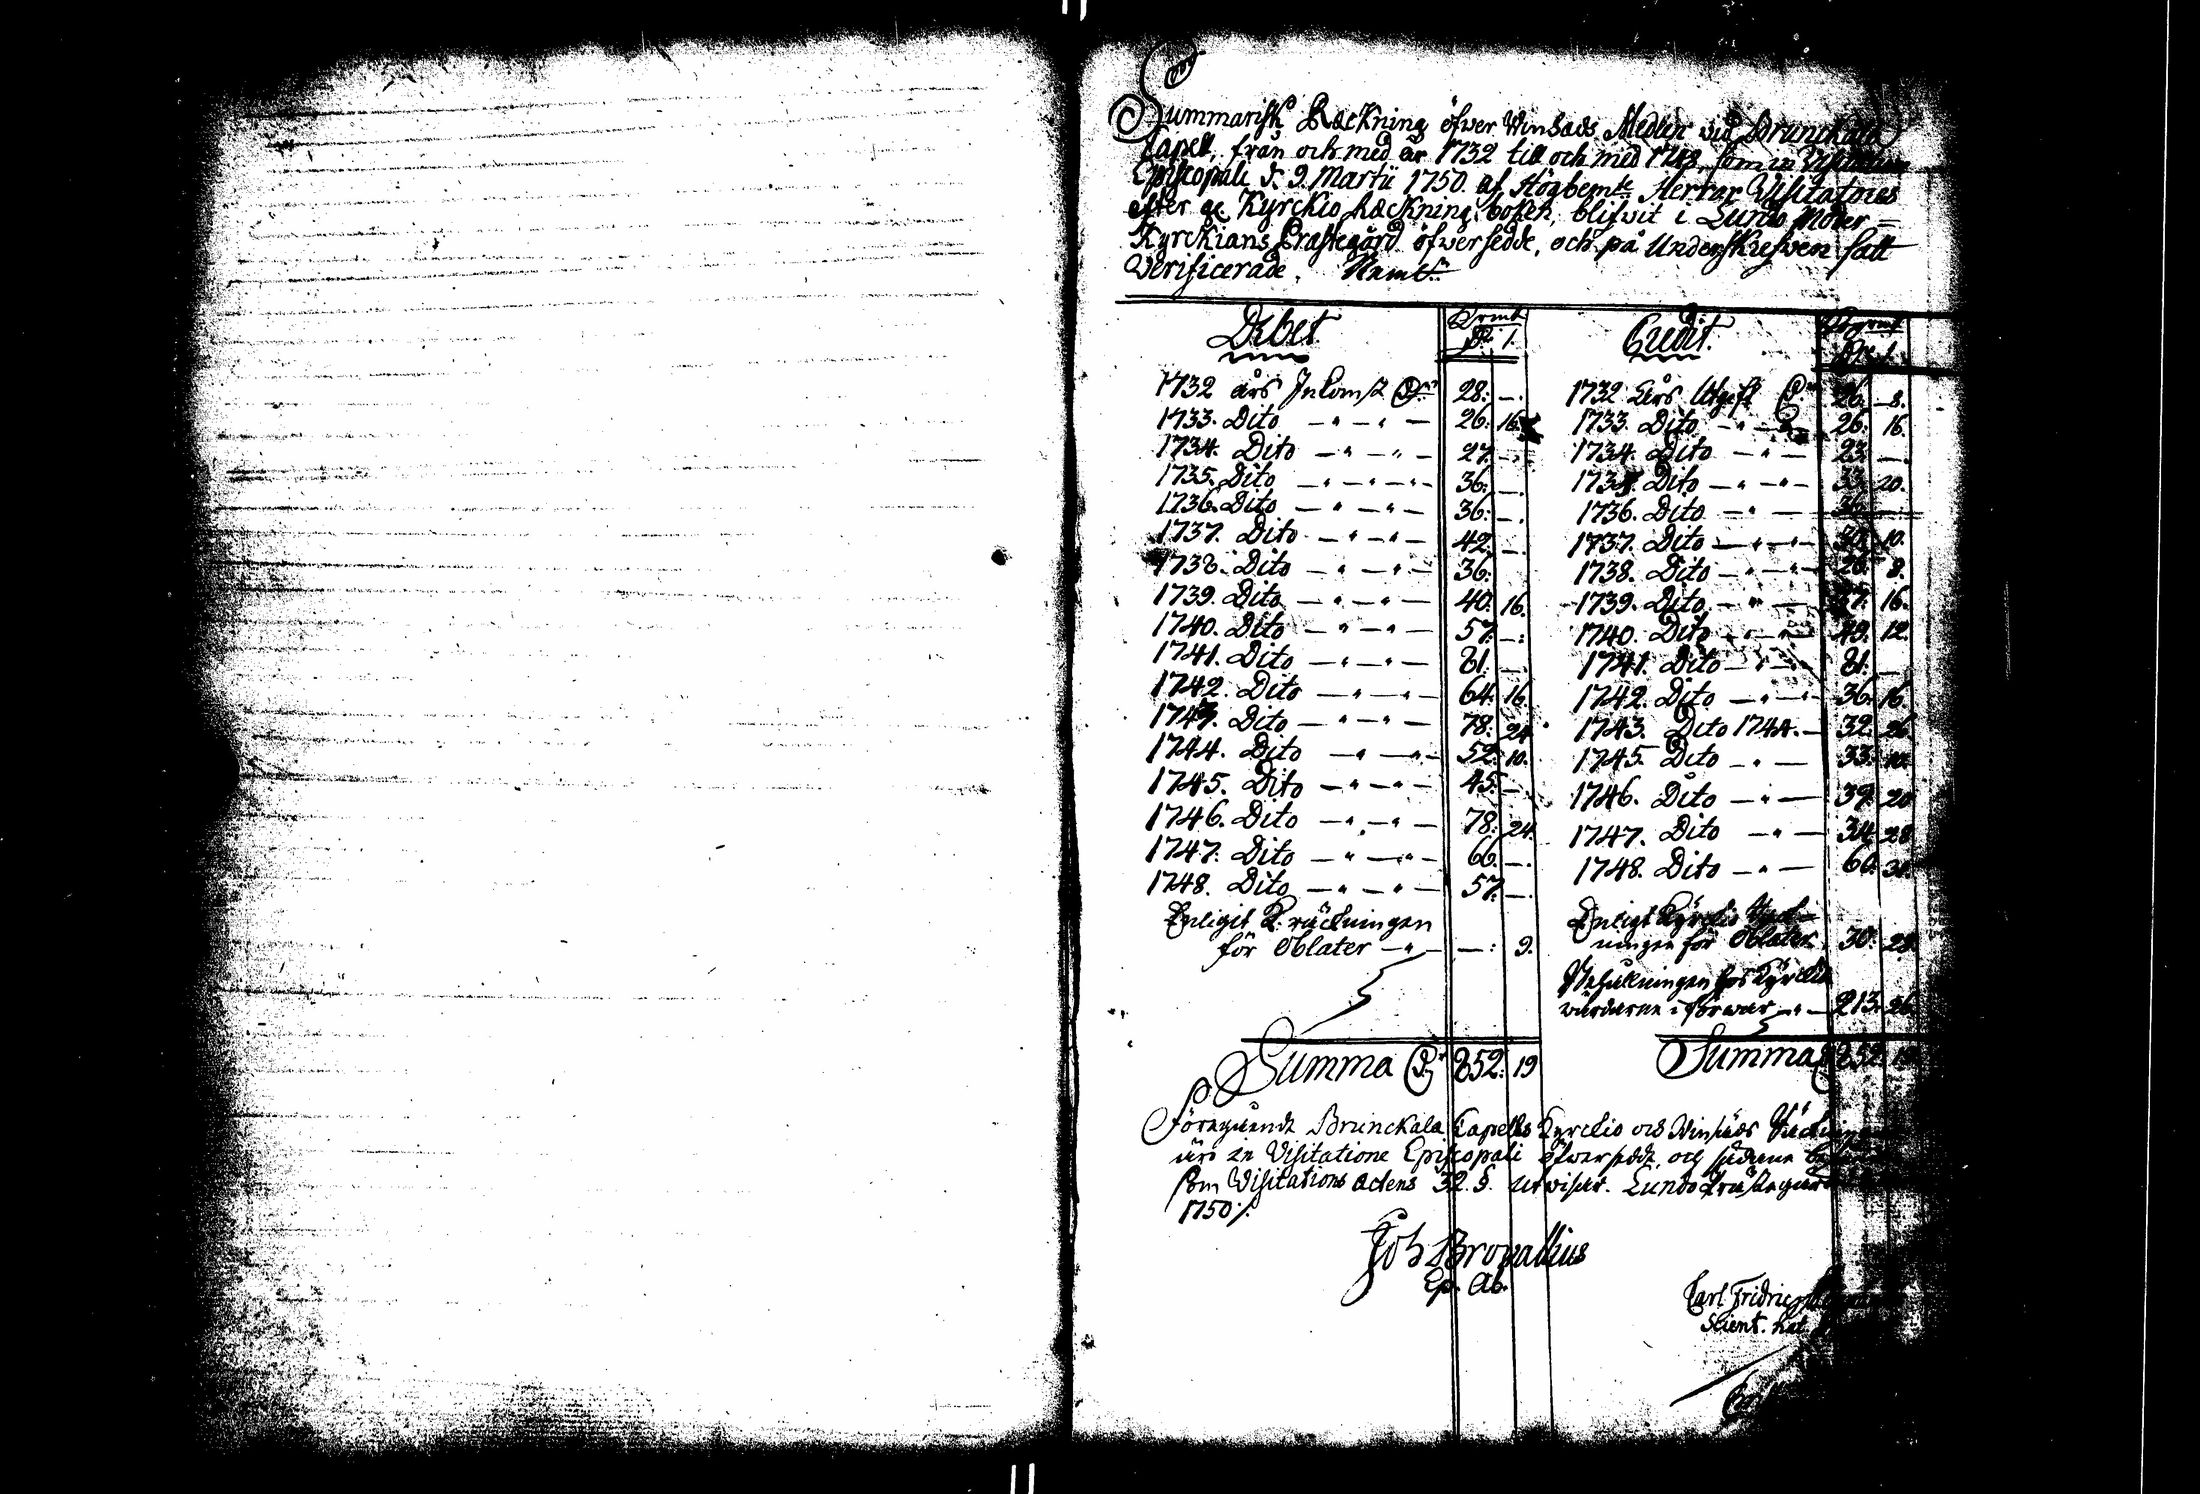 Summarisk Räckning öfwer Winsäds Medlen wid Brunckala
Capell, från och med år 1732 till och med 1748, som in Visitatione
Episcopali d. 9. Martii 1750. af Högbemte Herrar Visitatores
efter Kyrckio Räckning boken, blifwit i Lundo Moder
Kyrckians Prästegård öfwersedde, och på Underskrefwen satt
Verificerade. Nämbl.
Debet Credit
1732 års Inkomst 28: —. 1732 Års Utgift 26: 8.
1733. Dito 26: 16. 1733. Dito 26: 16.
1734. Dito 27: —. 1734. Dito 23: —.
1735. Dito 36: —. 1735. Dito 33: 20.
1736. Dito 36: —. 1736. Dito 36: —
1737. Dito 42: —. 1737. Dito 10.
1738. Dito 36: 1738. Dito 8.
1739. Dito 40: 16. 1739. Dito 16.
1740. Dito 57: —: 1740. Dito 49: 12.
1741. Dito 81: —. 1741. Dito 81:
1742. Dito 64: 16. 1742. Dito 36: 16.
1743. Dito 78: 24. 1743. Dito 1744. 32: 26.
1744. Dito 52: 10.
1745. Dito 45: — 1745. Dito 33:
1746. Dito 78: 24. 1746. Dito 39: 20
1747. Dito 66: —. 1747. Dito 34: 28
1748. Dito 57: —. 1748. Dito 60: 31.
Enligit K. räckningen
för Oblater — : 9.
Enligt Kyrckio Räck-
ningen för Oblater 30: 28.
Behållningen hos Kyrckio
wärdarne i förwar 213: 26.
Summa 852: 19 Summa 852: 19
Föregående Brunckala Capells Kyrckio och Winsäds
äro in Visitatione Episcopali öfwersedde, och sådane
som Visitations Actens 32. §. utwisar. Lundo Prästegård
1750.
Joh Browallius
Ep. Ab.
Carl Fridric
Scient. Nat.